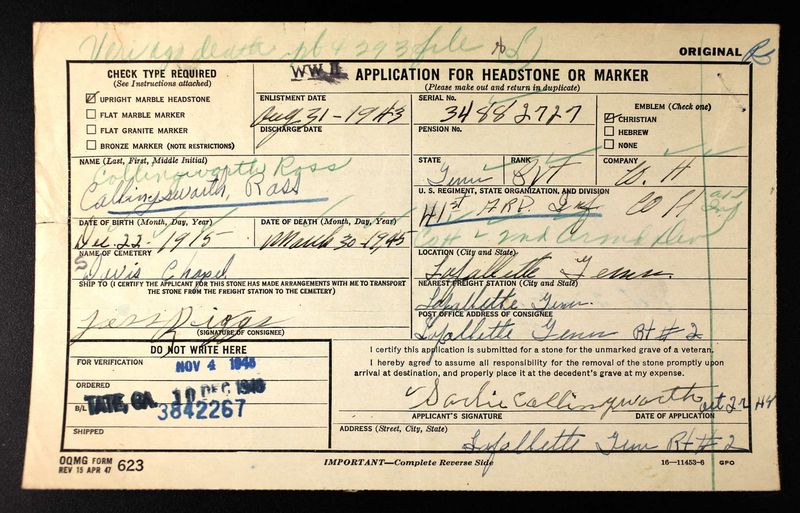 ORIGINAL
CHECK TYPE REQUIRED
(See Instructions attached)
UPRIGHT MARBLE HEADSTONE
FLAT MARBLE MARKER
FLAT GRANITE MARKER
BRONZE MARKER (NOTE RESTRICTIONS)
WW II APPLICATION FOR HEADSTONE OR MARKER
(Please make out and return in duplicate)
ENLISTMENT DATE
Aug 31-1943
DISCHARGE DATE
SERIAL No.
34882727
PENSION No.
EMBLEM (Check one)
CHRISTIAN
HEBREW
NONE
NAME (Last, First, Middle Initial)
Collingsworth Ross
Collingsworth, Ross
STATE
Tenn
RANK
PVT
COMPANY
Co. H
U. S. REGIMENT, STATE ORGANIZATION, AND DIVISION
41st ARD. Inf Co H
Co H - 2nd Armd Div
DATE OF BIRTH (Month, Day, Year)
Dec. 22 - 1915
DATE OF DEATH (Month, Day, Year)
March 30-1945
NAME OF CEMETERY
Chapel
LOCATION (City and State)
Lafollette Tenn.
SHIP TO (I CERTIFY THE APPLICANT FOR THIS STONE HAS MADE ARRANGEMENTS WITH ME TO TRANSPORT THE STONE FROM THE FREIGHT STATION TO THE CEMETERY)
NEAREST FREIGHT STATION (City and State)
Lafollette Tenn.
Riggs
(SIGNATURE OF CONSIGNEE)
POST OFFICE ADDRESS OF CONSIGNEE
Lafollette Tenn Rt # 2
DO NOT WRITE HERE
FOR VERIFICATION
NOV 4 1948
ORDERED
TATE, GA. 10 DEC 1948
B/L
3842267
SHIPPED
I certify this application is submitted for a stone for the unmarked grave of a veteran.
I hereby agree to assume all responsibility for the removal of the stone promptly upon
arrival at destination, and properly place it at the decedent's grave at my expense.
Collingsworth Oct 22 48
APPLICANT'S SIGNATURE
DATE OF APPLICATION
ADDRESS (Street, City, State)
Lafollette Tenn Rt # 2
OQMG FORM
REV 15 APR 47 623
IMPORTANT—Complete Reverse Side
16—11453-6 GPO